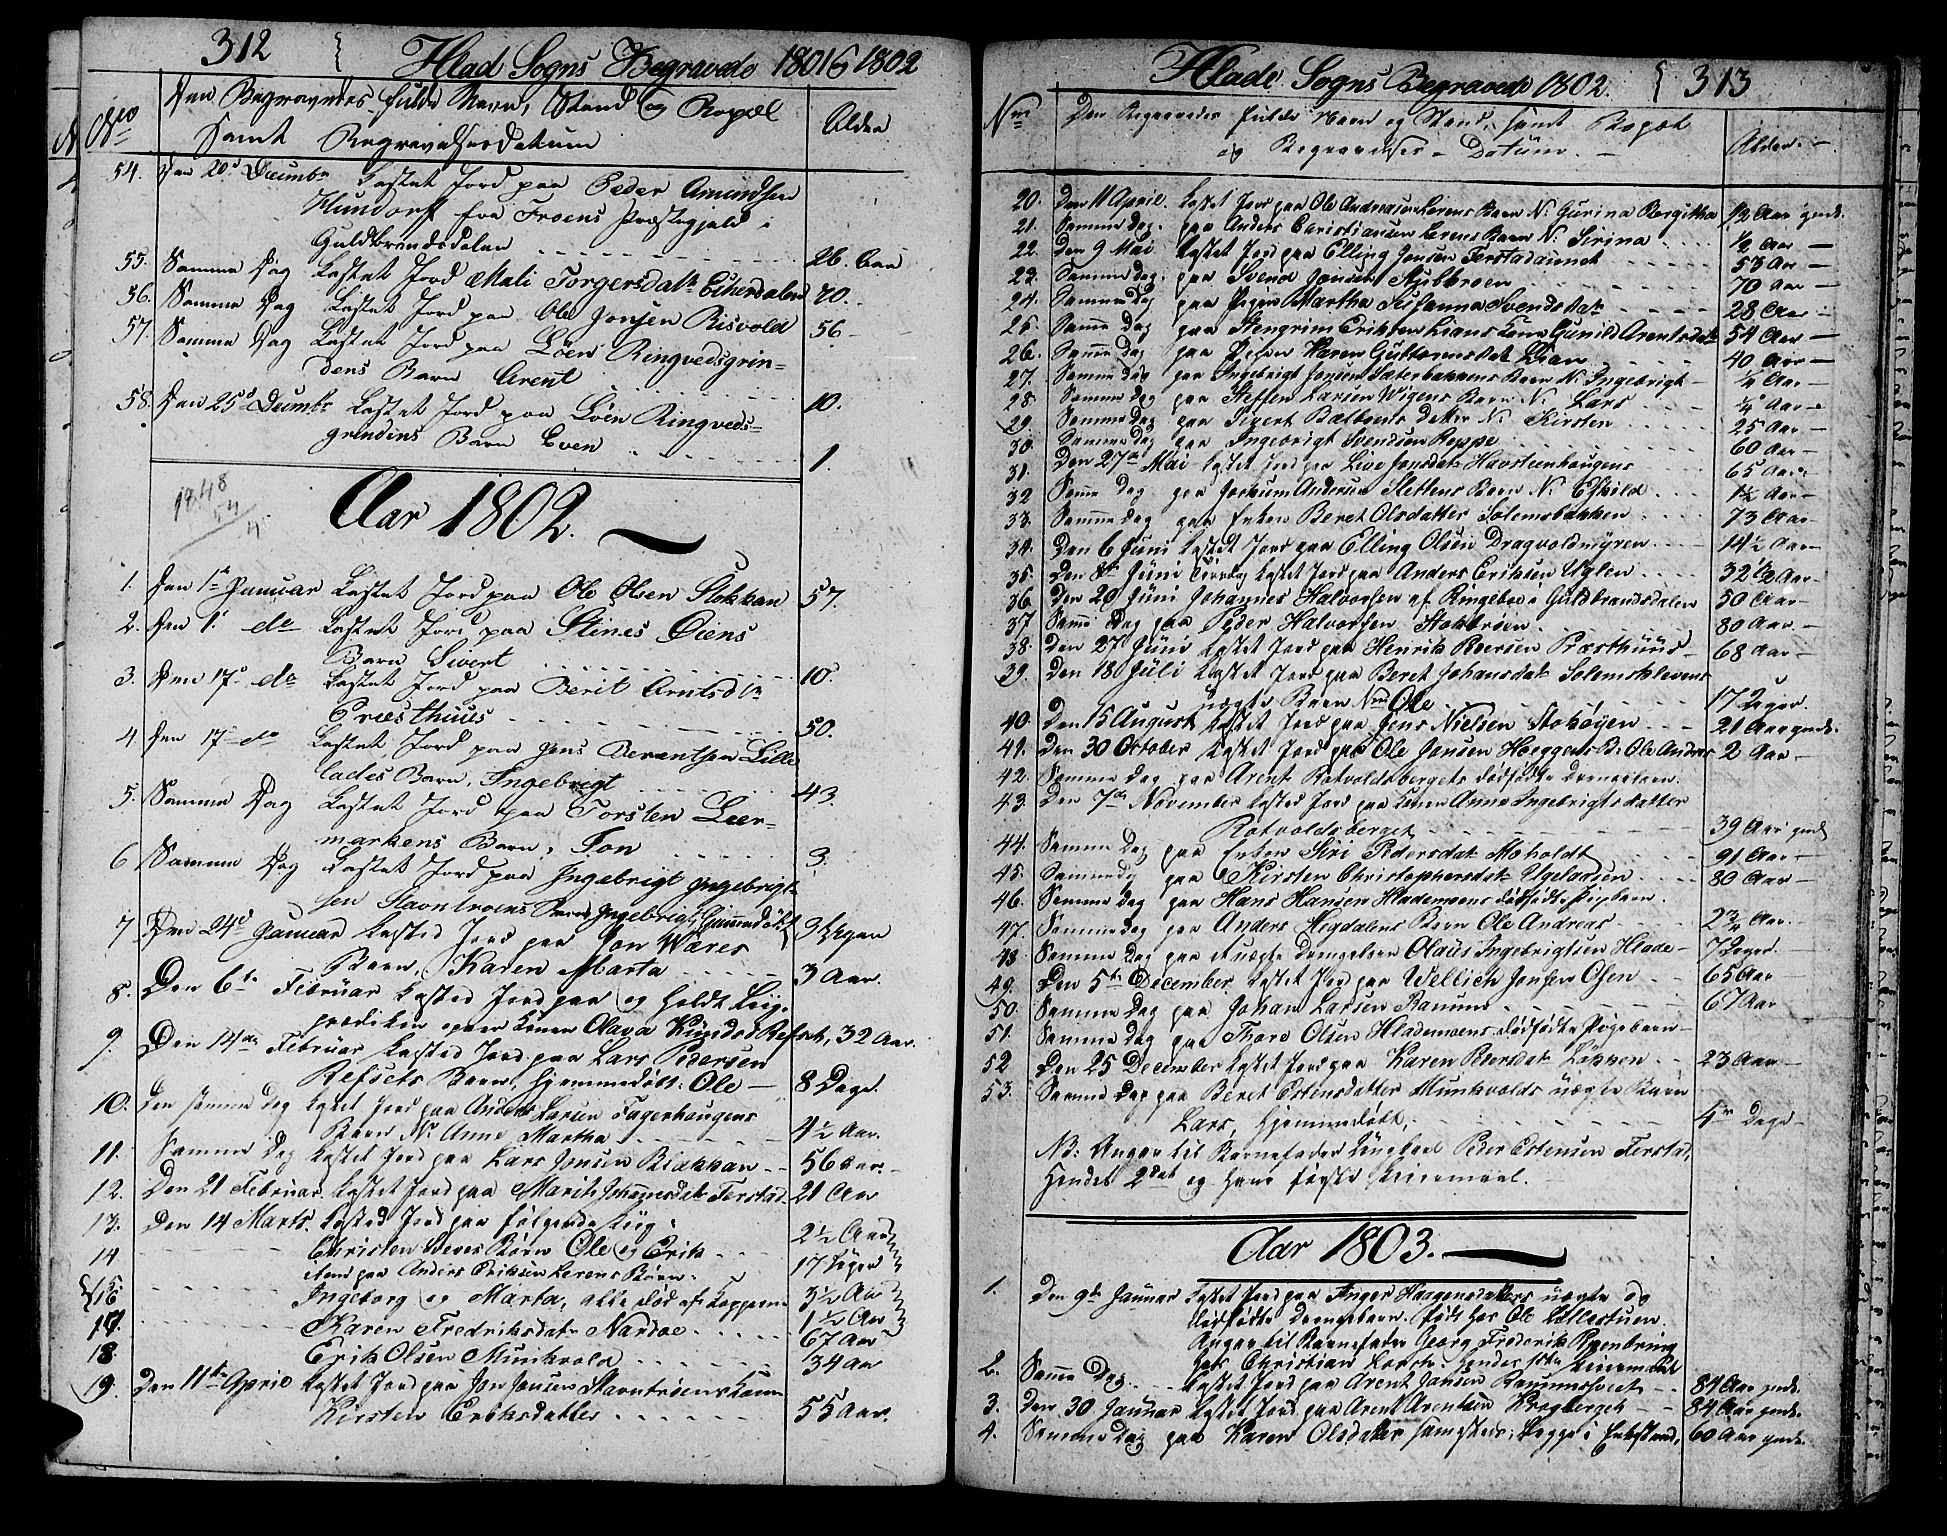 312 Hlad Sogns Begravede 1801 & 1802
Den Begravedes fulde Navn, Stand og Bopæl
Samt Begravelsesdatum
Alder
54. Den 20de Decembr kastet Jord paa Peder Amundsen
Hundorff fra Froens Præstegjæld i
Guldbrandsdalen 26. Aar
55. Samme Dag kastet Jord Mali Torgersdatr 70.
56. Samme Dag kastet Jord paa Ole Jonsen Risvold 56
57. Samme Dag kastet Jord paa Ringvedsgrin=
dens Barn Arent 10.
58. Den 25de Decembr kastet Jord paa Ringveds=
grindens Barn Even 1.
Aar 1802.
1. Den 1te Januar kastet Jord paa Ole Olsen Stokkan 57.
2. Den 1. do kastet Jord paa Stines Oiens
Barn Sivert 10.
3. Den 17. do kastet Jord paa Berit Arntsdtr
Præsthuus 50.
4. Den 17 do kastet Jord paa Jens Berentsen Lille
lades Barn, Ingebrigt 43.
5. Samme Dag kastet Jord paa Torsten Leer=
markens Barn, Jon 3.
6 Samme Dag kastet Jord paa Ingebrigt Ingebrigt=
sen Stavntroens Barn Ingebrigt, Hjemmedøbt 9 Uger
7. Den 24de Januar kasted Jord paa Jon Wæres
Barn, Karen Marta 3 Aar.
8. Den 6te Februar kasted Jord paa og holdt Liig=
prædiken over Konen Olava 32 Aar.
9. Den 14de Februar kasted Jord paa Lars Pedersen
Refsets Barn, Hjemmedøbt: Ole 8 Dage.
10. den samme Dag kastet Jord paa Anders Larsen Fagerhaugens
Barn N. Anne Martha 4½ Aar.
11. Samme Dag kastet Jord paa Lars Jonsen Blækkan 56 Aar.
12. Den 21 Februar kastet Jord paa Marit Johansdatr Ferstad 21 Aar
13. Den 14 Marts. kasted Jord paa følgende Liig:
14 Christen Børn Ole og Erik 2½ Aar
item paa Anders Eriksen Lerens Børn. 17 Uger
15 16 Ingeborg og Marta, alle død af Kopperne 3½ Aar
17. Karen Fredriksdatr Nardoe 1½ Aar
18. Erik Olsen Munkvold 67 Aar
34 Aar
19. Den 11te April kastet Jord paa Jon Jonsen Stavntrøens Kone
Kirsten Eriksdatter 55 Aar.
Hlade Sogns Begravede 1802. 313
Nm Den Begravedes fulde Navn og Stand, samt Bopæl
og Begravelses-Datum. Alder.
20. Den 11 April. kastet Jord paa Ole Andreasen Lerens Barn N. Gurina Bergitha ½ Aar gml.
21. Samme Dag. paa Anders Christiansen Lerens Barn N. Sirina ½ Aar
22. Den 9 Mai kastet Jord paa Elling Jonsen Ferstadaunet 53 Aar
23. Samme Dag. paa Svend Jonsen Stubbroen 70 Aar
24. Samme Dag paa Pigen Martha Svendsdatr 28 Aar
25. Samme Dag paa Stengrim Eriksen Lians Kone Gunild Arentsdatr 54 Aar
26. Samme Dag paa Pigen Karen Guttormsdatr Lian 40 Aar
27. Samme Dag paa Ingebrigt Jonsen Sæterbakkens Barn N. Ingebrigt ¼ Aar
28. Samme Dag paa Steffen Larsen Wigens Barn N. Lars ¼ Aar
29. Samme Dag paa Sivert datter N. Kirsten 25 Aar
30. Samme Dag paa Ingebrigt Svendsen Reppe 60 Aar
31. Den 27de Mai kastet Jord paa Live Jonsdatr Havsteenhaugens 65 Aar
32 Samme Dag paa Jochum Andersen Slettens Barn N. Eskild 1½ Aar
33. Samme Dag paa Enken Beret Olsdatter Solemsbakken 73 Aar
34. Den 6 Juni kastet Jord paa Elling Olsen Dragvoldmyren 14½ Aar
35. Den 8de Juni Tirsdag kastet Jord paa Anders Eriksen Uglen 32½ Aar
36. Den 20 Juni Johannes Halvorsen af Ringeboe i Guldbrandsdalen 50 Aar
37. Samme Dag paa Peder Halvorsen Stokbroen 80 Aar
38. Den 27 Juni kastet Jord paa Henrik Roersen Præsthuus 68 Aar
39. Den 18 Juli kastet Jord paa Beret Johansdatr Solemsklevens
uægte Barn Nvn Ole 17 Uger.
40. Den 15 August kastet Jord paa Jens Nielsen Stokøyen 21 Aar gml.
41. Den 30 October kastet Jord paa Ole Jonsen Hoeggens B. Ole Andreas 2 Aar
42. Samme Dag paa Arent Rotvoldsbergets dødfødte Drengebarn.
43. Den 7de November kasted Jord paa Konen Anne Ingebrigtsdatter
Rotvoldsberget 39 Aar gml.
44. Samme Dag paa Enken Siri Pedersdatr Moholdt 91 Aar
45. Samme Dag paa Kirsten Christophersdatr 80 Aar
46. Samme Dag paa Hans Hansen Hlademoens dødfødte Pigebarn.
47. Samme Dag paa Anders Hegdalens Barn Ole Andreas 2¾ Aar.
48 Samme Dag paa et uægte Drengebarn Olaus Ingebrigtsen Hlade 7 Uger.
49. Den 5te December kastet Jord paa Wellich Jonsen Osen 65 Aar
50. Samme Dag paa Johan Larsen Ranum 67 Aar
51. Samme Dag paa Thore Olsen Hlademoens dødfødte Pigebarn
52 Den 25 December kastet Jord paa Karen Peersdatr Løkken 23 Aar
53. Samme Dag paa Beret Estensdatter Munkvolds uægte Barn
Lars, Hjemmedøbt, 4re Dage
NB: Angav til Barnefader Ungkarl Peder Estensen Ferstad,
Hendes 2det og hans første Leiermaal.
Aar 1803.
1. Den 9de Januar kastet Jord paa Inger Haagensdatters uægte og
dødfødte Drengebarn, født hos Ole Lillestuen.
Angav til Barnefader Georg Frederik
hos Christian Lorch. Hendes Leiermaal
2. Samme Dag kastet Jord paa Arent Jansen 84 Aar gml.
3. Den 30 Januar kastet Jord paa Arent Arentsen Kragberget 84 Aar gml.
4. Samme Dag paa Karen Olsdatter 60 Aar gml.